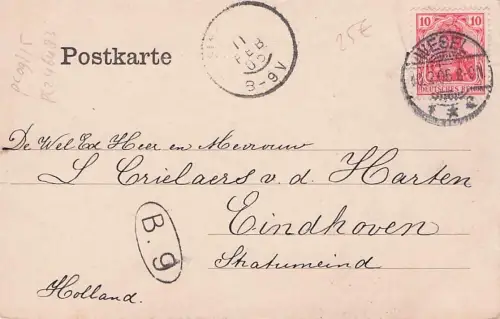 25€
10 10
WESEL
DEUTSCHES REICH
11
FEB
05
8-9V
Postkarte
De Wel Ed Heer en Mevrouw
L Crielaers v. d. Harten
Eindhoven
Stratumeind
B.9
Holland.